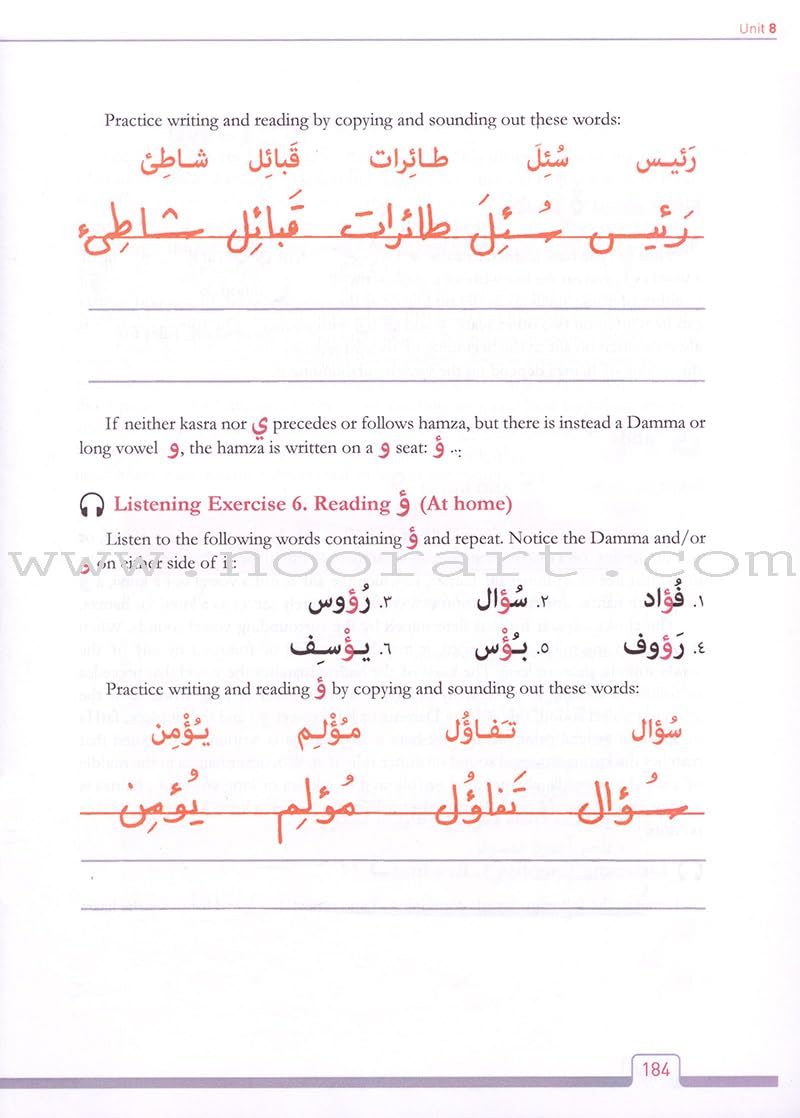 Unit 8
Practice writing and reading by copying and sounding out these words:
رَئيـس سُئِلَ طـائِرات قَبائِل شـاطِئ
رَئيس سُـئِلَ طائرات قَبائِل شـاطِىء
If neither kasra nor ي precedes or follows hamza, but there is instead a Damma or
long vowel و, the hamza is written on a و seat: ؤ ...
Listening Exercise 6. Reading ؤ (At home)
Listen to the following words containing ؤ and repeat. Notice the Damma and/or
www.noorart.com
و on either side of it:
١. فُؤاد ٢. سُؤال ٣. رُؤوس
٤. رَؤوف ٥. بُـؤْس ٦. يـؤْسِـف
Practice writing and reading ؤ by copying and sounding out these words:
سُؤال تـفـاؤُل مـُؤْلـِم يـُؤْمِن
سُـؤال تَفاؤُل مُؤلِم يُؤمِن
184